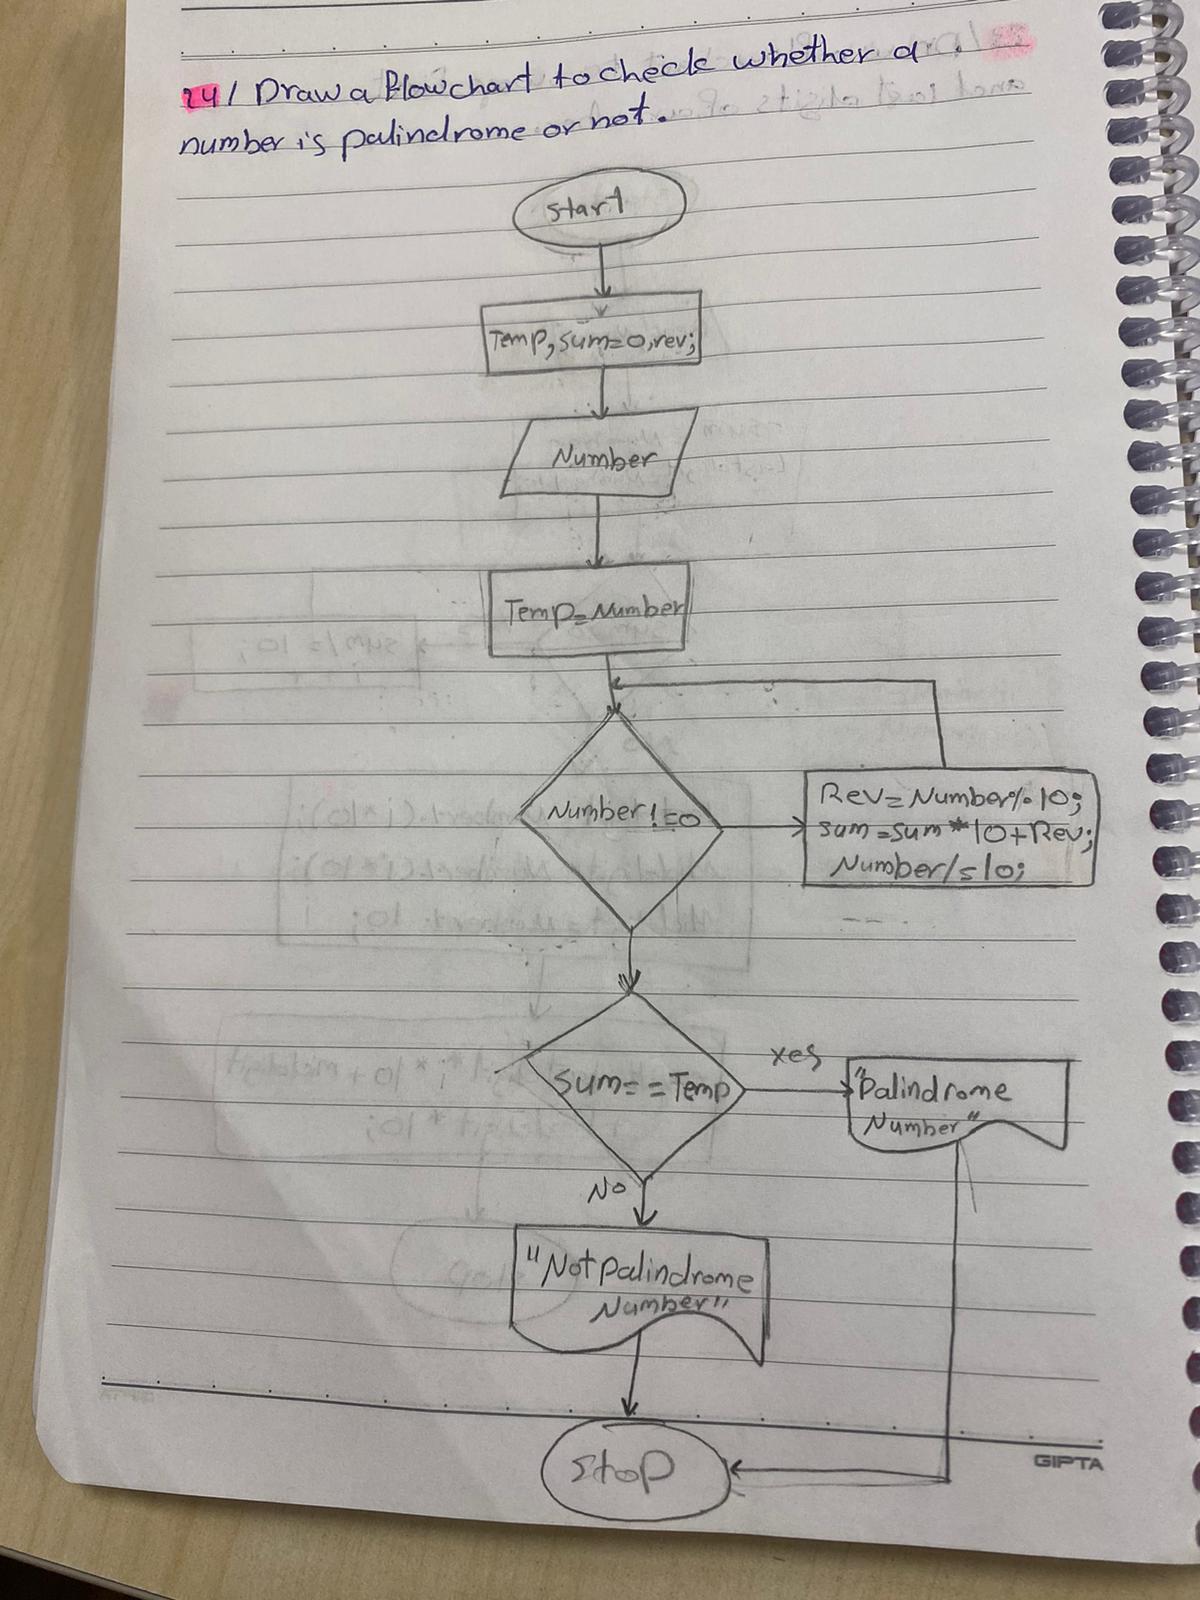 24/ Draw a flowchart to check whether a
number is palindrome or not.
start
Temp, sum=0, rev;
Number
Temp=Number
Number!=0
Rev=Number%10;
sum=sum*10+Rev;
Number/=10;
Sum==Temp
Yes
"Palindrome
Number"
No
"Not Palindrome
Number"
Stop
GIPTA